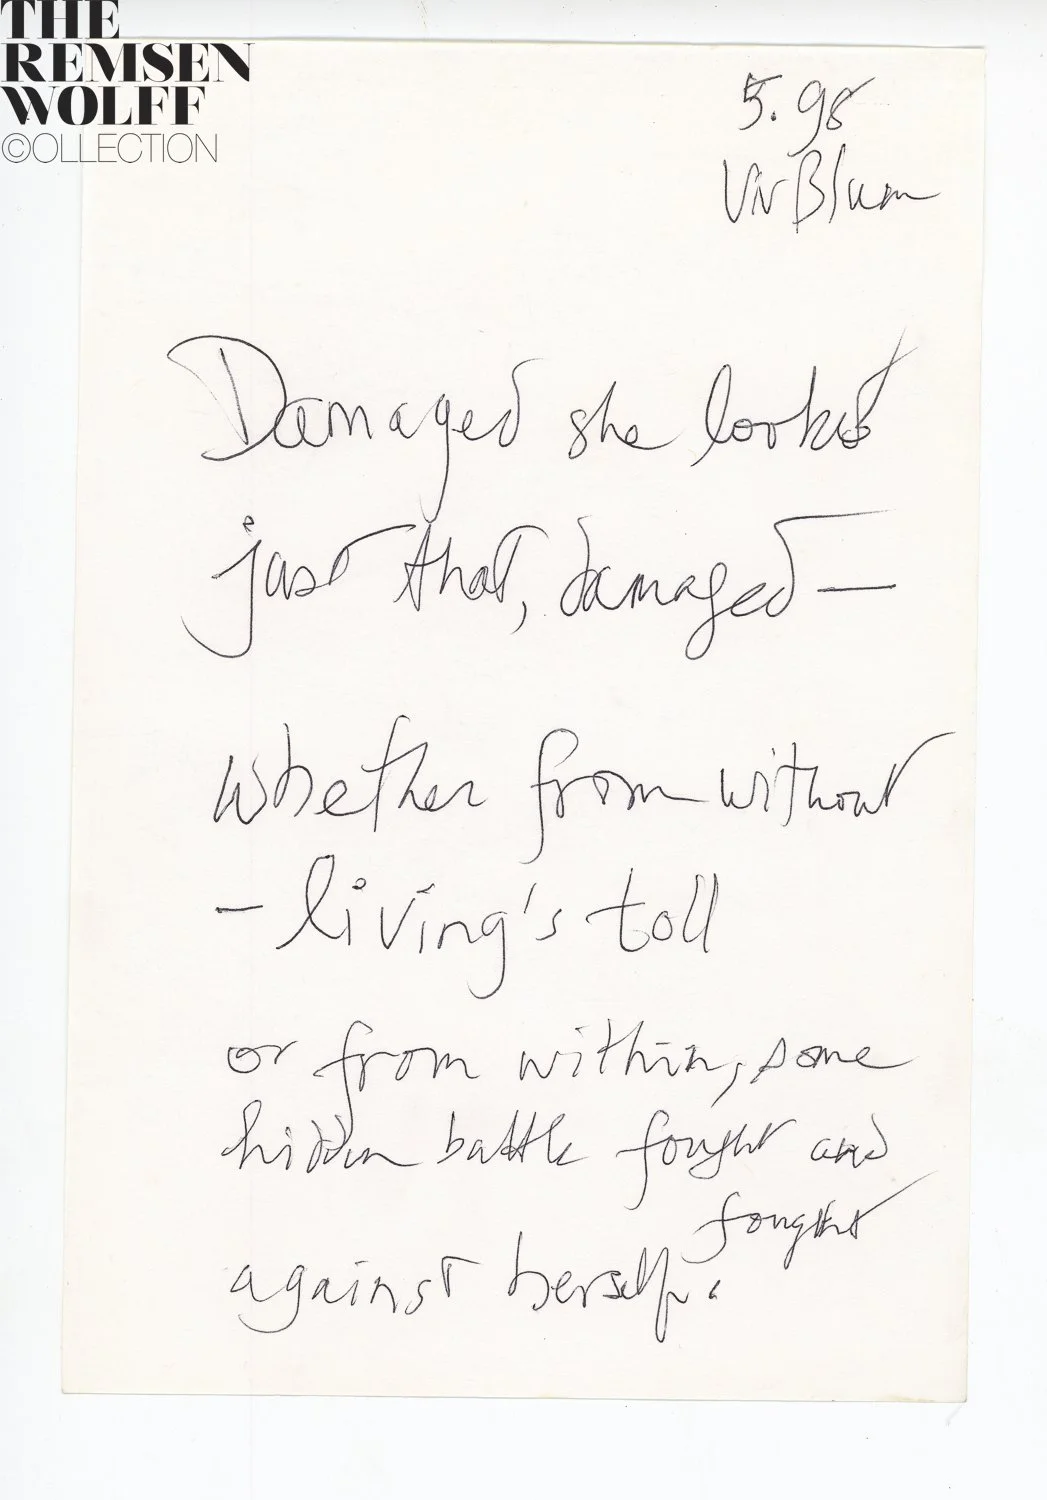 THE
REMSEN
WOLFF
©OLLECTION
5.98
Viv Blum
Damaged she looked
just that, damaged —
whether from without
– living's toll
or from within, some
hidden battle fought and
fought
against herself.